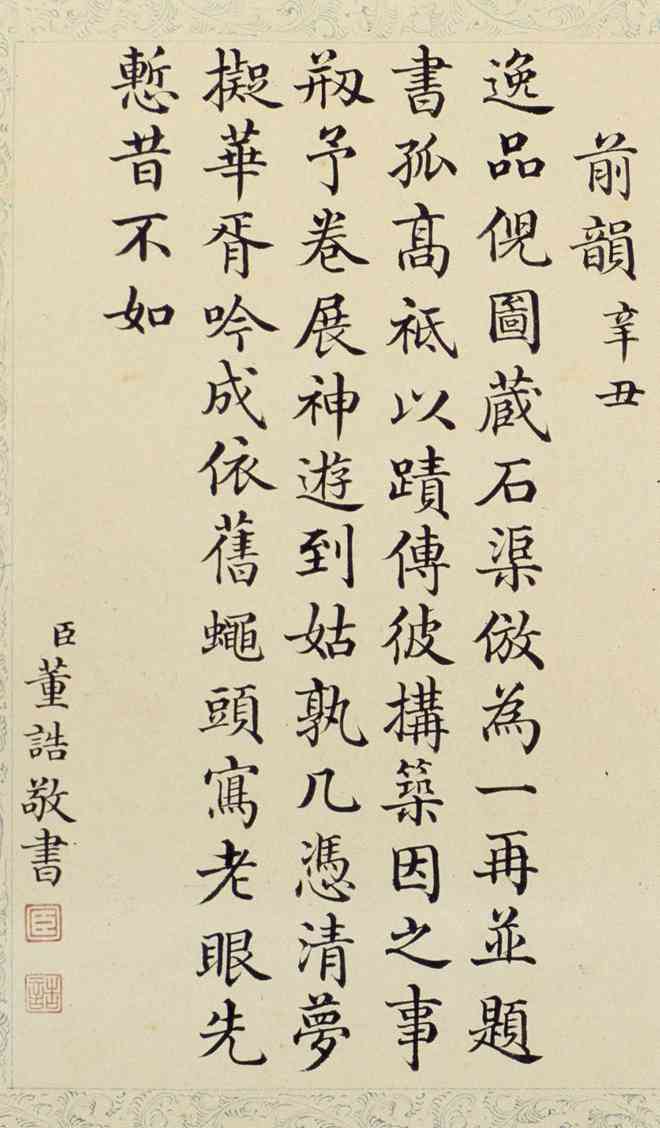 前韻 辛丑
逸品倪圖蔵石渠倣為一再並題
書孤髙祗以蹟傳彼搆築因之事
剏予卷展神遊到姑孰几憑清夢
擬華胥吟成依舊蠅頭寫老眼先
慙昔不如
臣董誥敬書
臣
誥